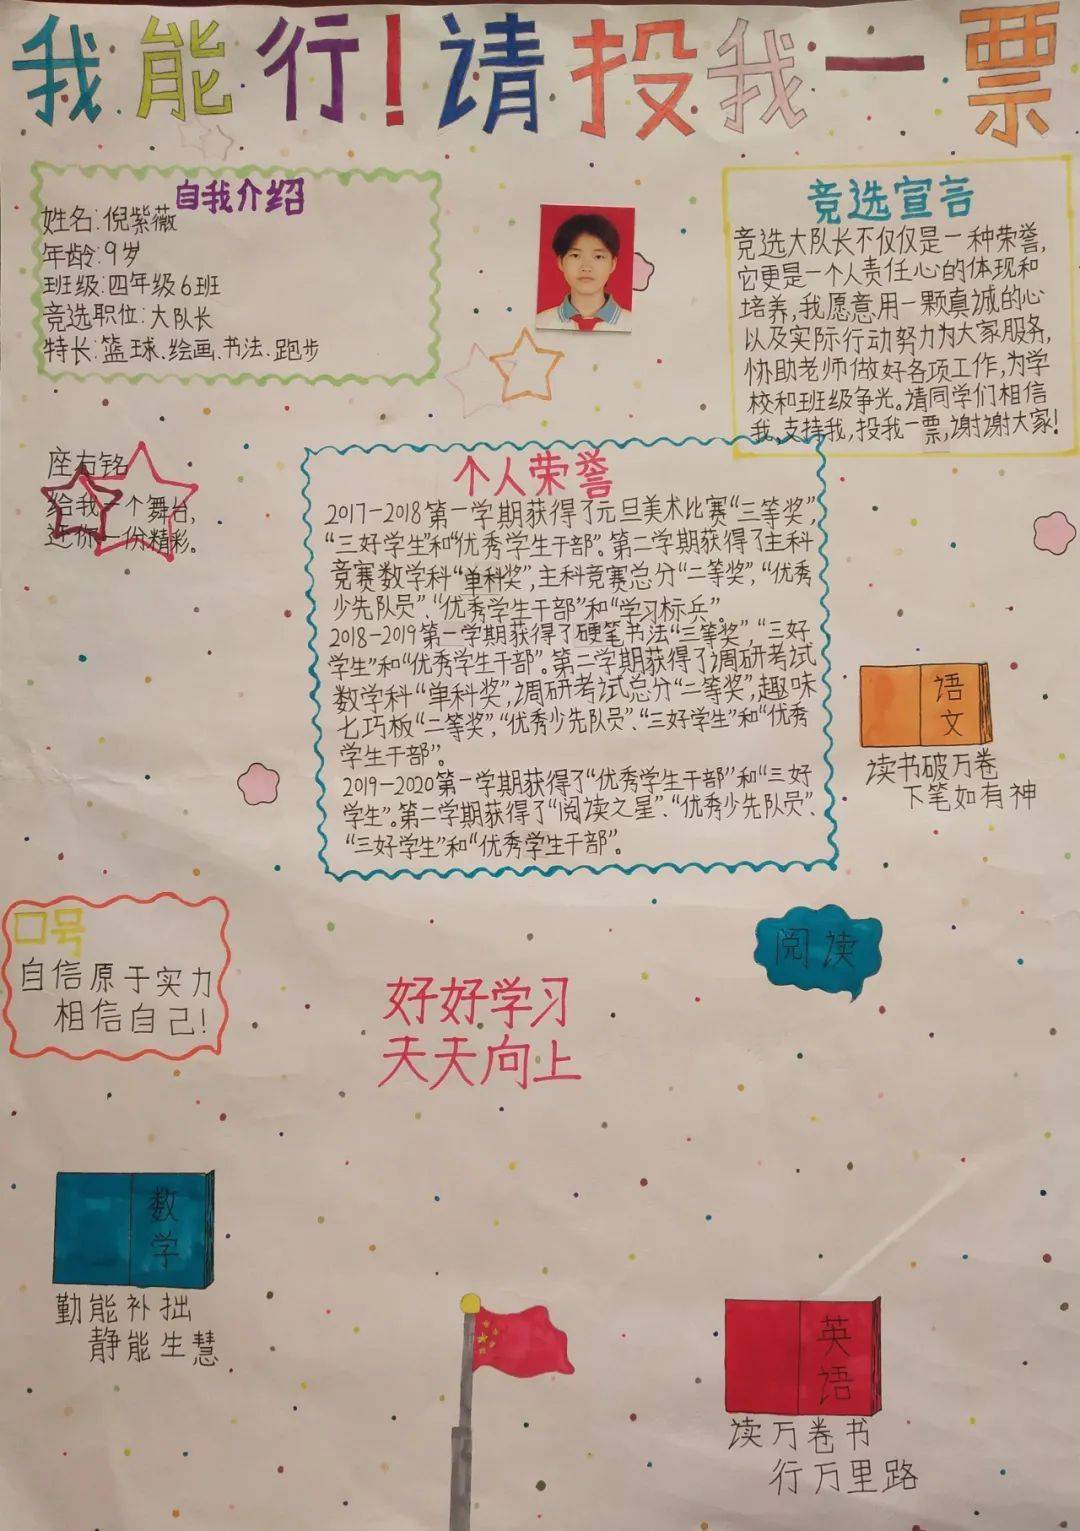 我能行！请投我一票
自我介绍
姓名：倪紫薇
年龄：9岁
班级：四年级6班
竞选职位：大队长
特长：篮球、绘画、书法、跑步
竞选宣言
竞选大队长不仅仅是一种荣誉，
它更是一个人责任心的体现和
培养，我愿意用一颗真诚的心
以及实际行动努力为大家服务，
协助老师做好各项工作，为学
校和班级争光。请同学们相信
我，支持我，投我一票，谢谢大家！
座右铭
给我一个舞台，
还你一份精彩。
个人荣誉
2017-2018第一学期获得了元旦美术比赛“三等奖”，
“三好学生”和“优秀学生干部”。第二学期获得了主科
竞赛数学科“单科奖”，主科竞赛总分“二等奖”，“优秀
少先队员”、“优秀学生干部”和“学习标兵”。
2018-2019第一学期获得了硬笔书法“三等奖”，“三好
学生”和“优秀学生干部”。第二学期获得了调研考试
数学科“单科奖”，调研考试总分“二等奖”，趣味
七巧板“二等奖”，“优秀少先队员”、“三好学生”和“优秀
学生干部”。
2019-2020第一学期获得了“优秀学生干部”和“三好
学生”。第二学期获得了“阅读之星”、“优秀少先队员”、
“三好学生”和“优秀学生干部”。
语文
读书破万卷
下笔如有神
口号
自信原于实力
相信自己！
好好学习
天天向上
阅读
数学
勤能补拙
静能生慧
英语
读万卷书
行万里路